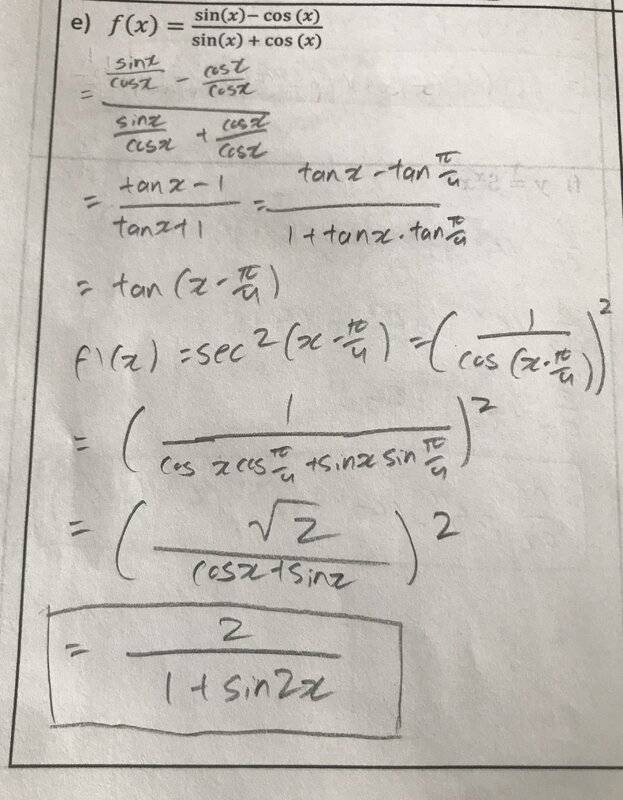 e) f(x) = (sin(x)− cos (x))/(sin(x) + cos (x))
= (sinx/cosx - cosx/cosx)/(sinx/cosx + cosx/cosx)
= (tanx-1)/(tanx+1) = (tanx-tan π/4)/(1+tanx.tan π/4)
= tan (x-π/4)
f'(x) = sec²(x-π/4) = (1/(cos (x-π/4)))²
= (1/(cos x cos π/4 + sinx sin π/4))²
= (√2/(cosx+sinx))²
= 2/(1+sin2x)